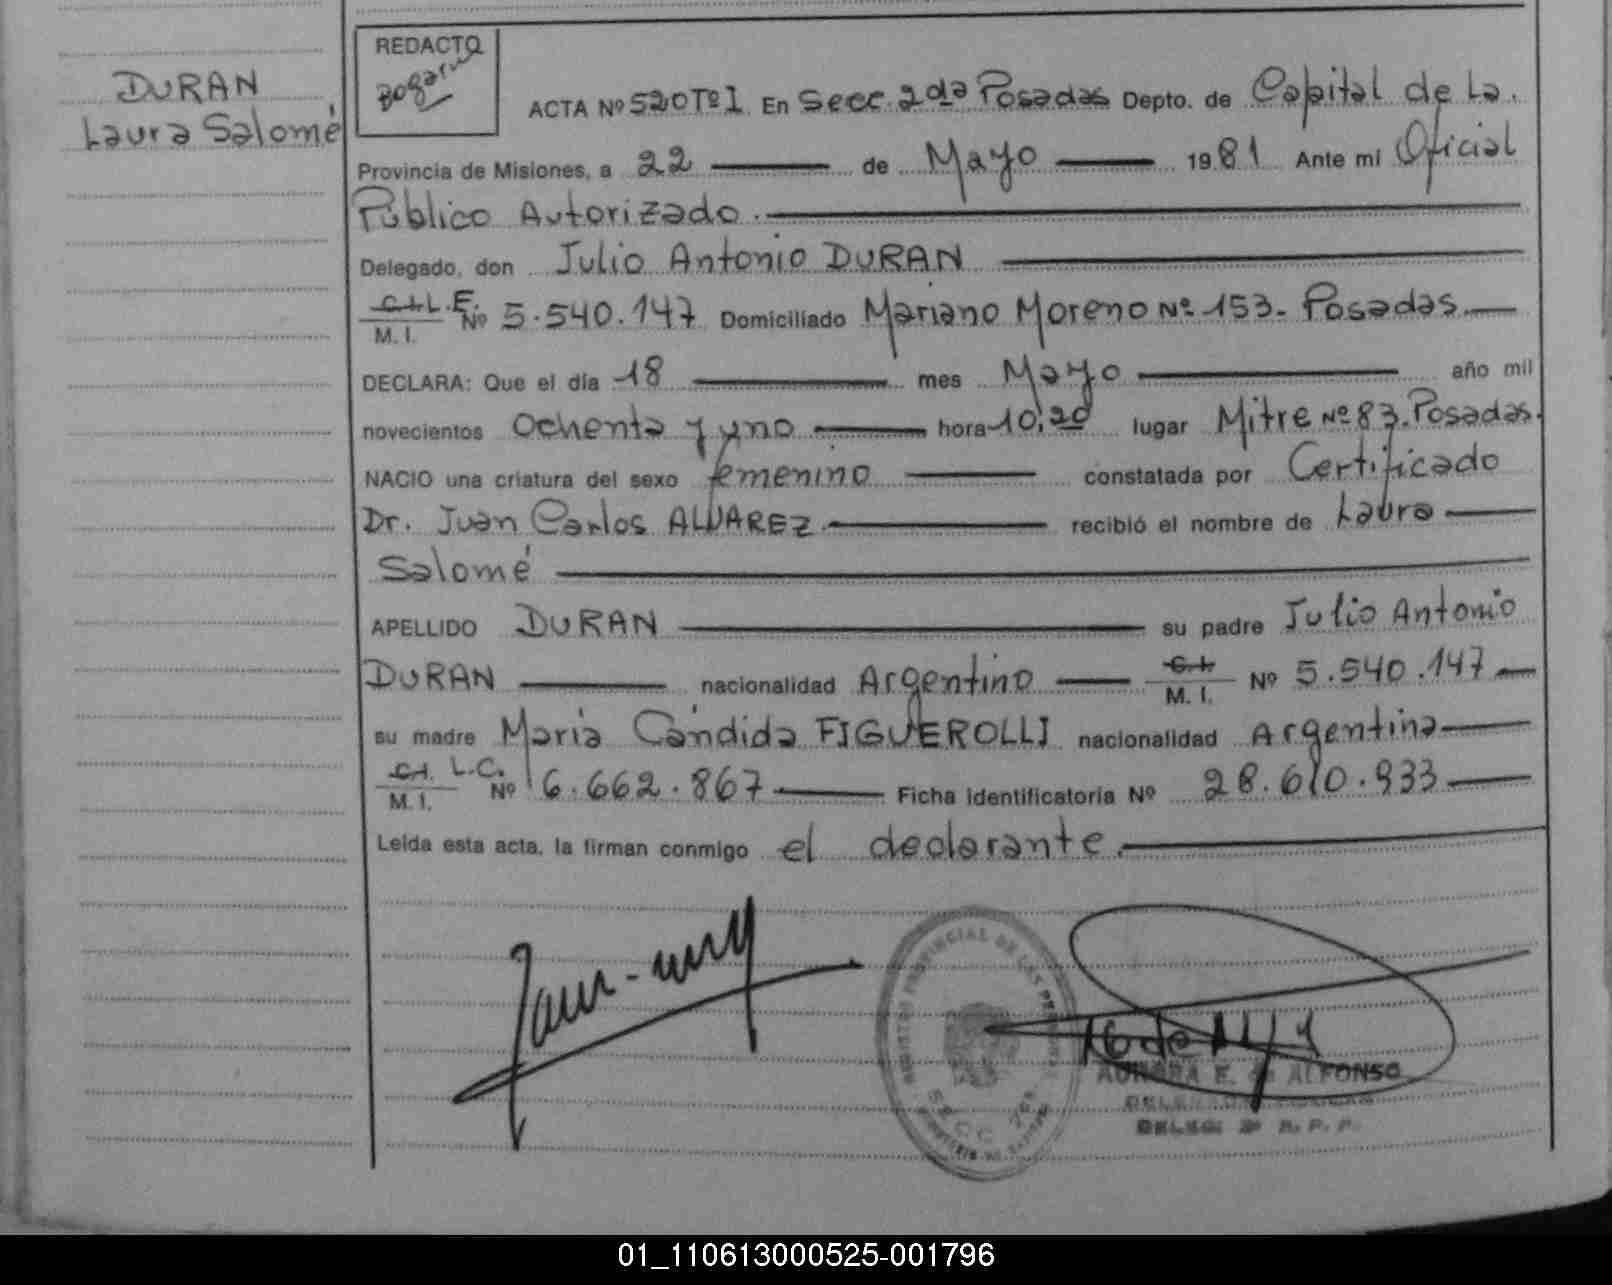 DURAN
Laura Salomé
REDACTO
Bogarin
ACTA Nº 520 Tº I En Secc. 2da Posadas Depto. de Capital de La.
Provincia de Misiones, a 22 de Mayo 1981 Ante mi Oficial
Público Autorizado.
Delegado, don Julio Antonio DURAN
C.I. L.E.
M. I. Nº 5.540.147 Domiciliado Mariano Moreno Nº 153. Posadas.
DECLARA: Que el día 18 mes Mayo año mil
novecientos ochenta y uno hora 10,20 lugar Mitre Nº 83. Posadas.
NACIO una criatura del sexo femenino constatada por Certificado
Dr. Juan Carlos ALVAREZ. recibió el nombre de Laura
Salomé
APELLIDO DURAN su padre Julio Antonio
DURAN nacionalidad Argentino C.I. M. I. Nº 5.540.147
su madre María Cándida FIGUEROLLI nacionalidad Argentina
C.I. L.C.
M. I. Nº 6.662.867 Ficha Identificatoria Nº 28.610.933
Leída esta acta, la firman conmigo el declarante.
REGISTRO PROVINCIAL DE LAS PERSONAS
SECC 2da
AURORA E. de ALFONSO
01_110613000525-001796